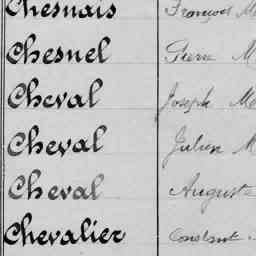 Chesnais François M
Chesnel Pierre M
Cheval Joseph Ma
Cheval Julien M
Cheval Auguste
Chevalier Constant